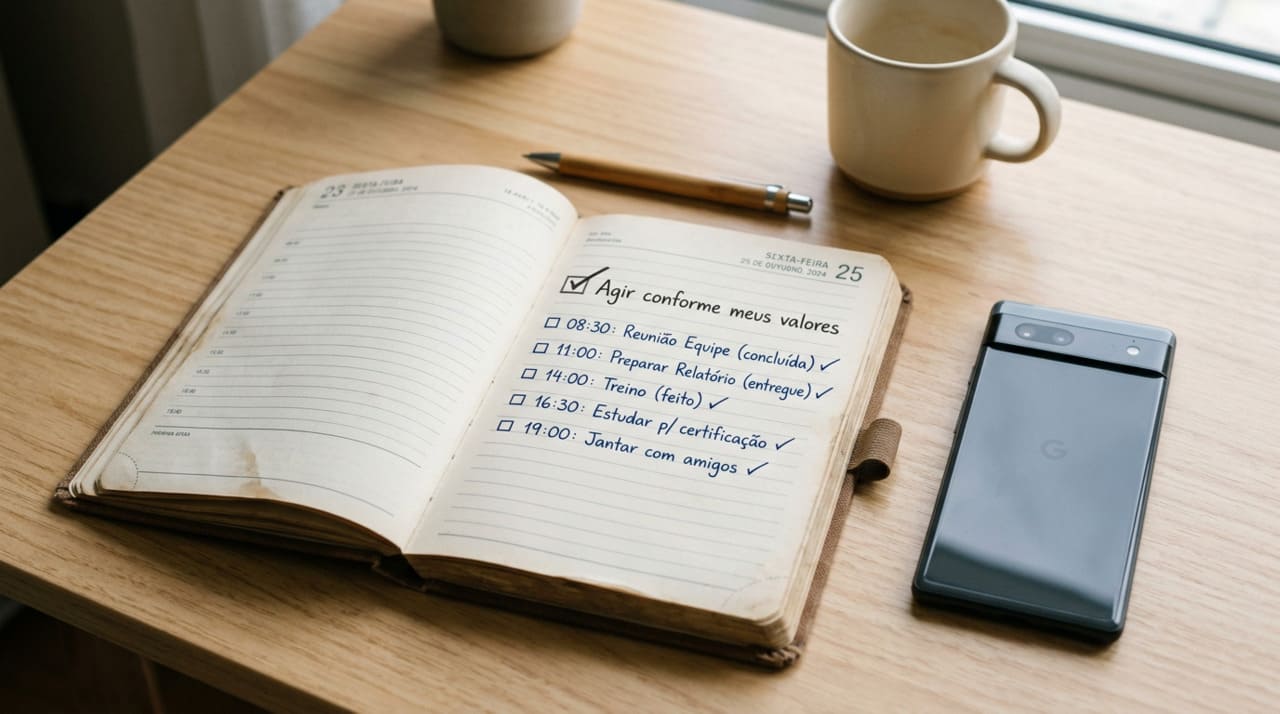 23 SEXTA-FEIRA
SEXTA-FEIRA 25
25 DE OUYUNO, 2024
☑ Agir conforme meus valores
☐ 08:30: Reunião Equipe (concluída) ✓
☐ 11:00: Preparar Relatório (entregue) ✓
☐ 14:00: Treino (feito) ✓
☐ 16:30: Estudar p/ certificação ✓
☐ 19:00: Jantar com amigos ✓
G